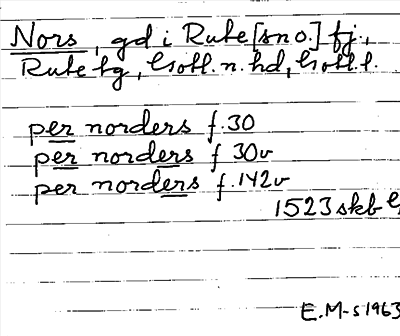 Nors, gd i Rute [sn o.] fj.,
Rute tg, Gotl. n. hd, Gotl. l.
per norders f. 30
per norders f 30v
per norders f. 142v
1523 skb G
E.M-s 1963